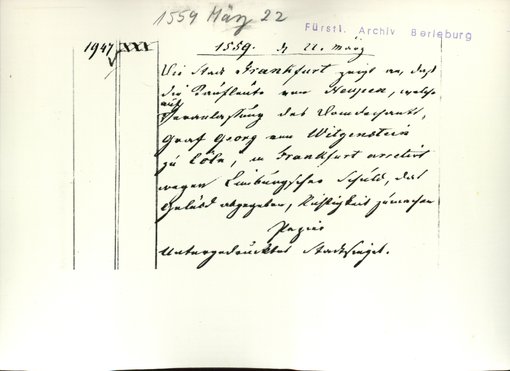 1559 März 22
Fürstl. Archiv Berleburg
1947 XXX
1559. d 22. März
Die Stadt Frankfurt zeigt an, daß
die Kaufleute von, welche
auf
Veranlassung des Domdechants,
Graf Georg von Witgenstein
zu Cöln, in Frankfurt arretirt
wegen Limburgscher Schuld, das
Gelübd abgegeben, Richtigkeit zumachen
Papier
Untergedrucktes Stadtsiegel.